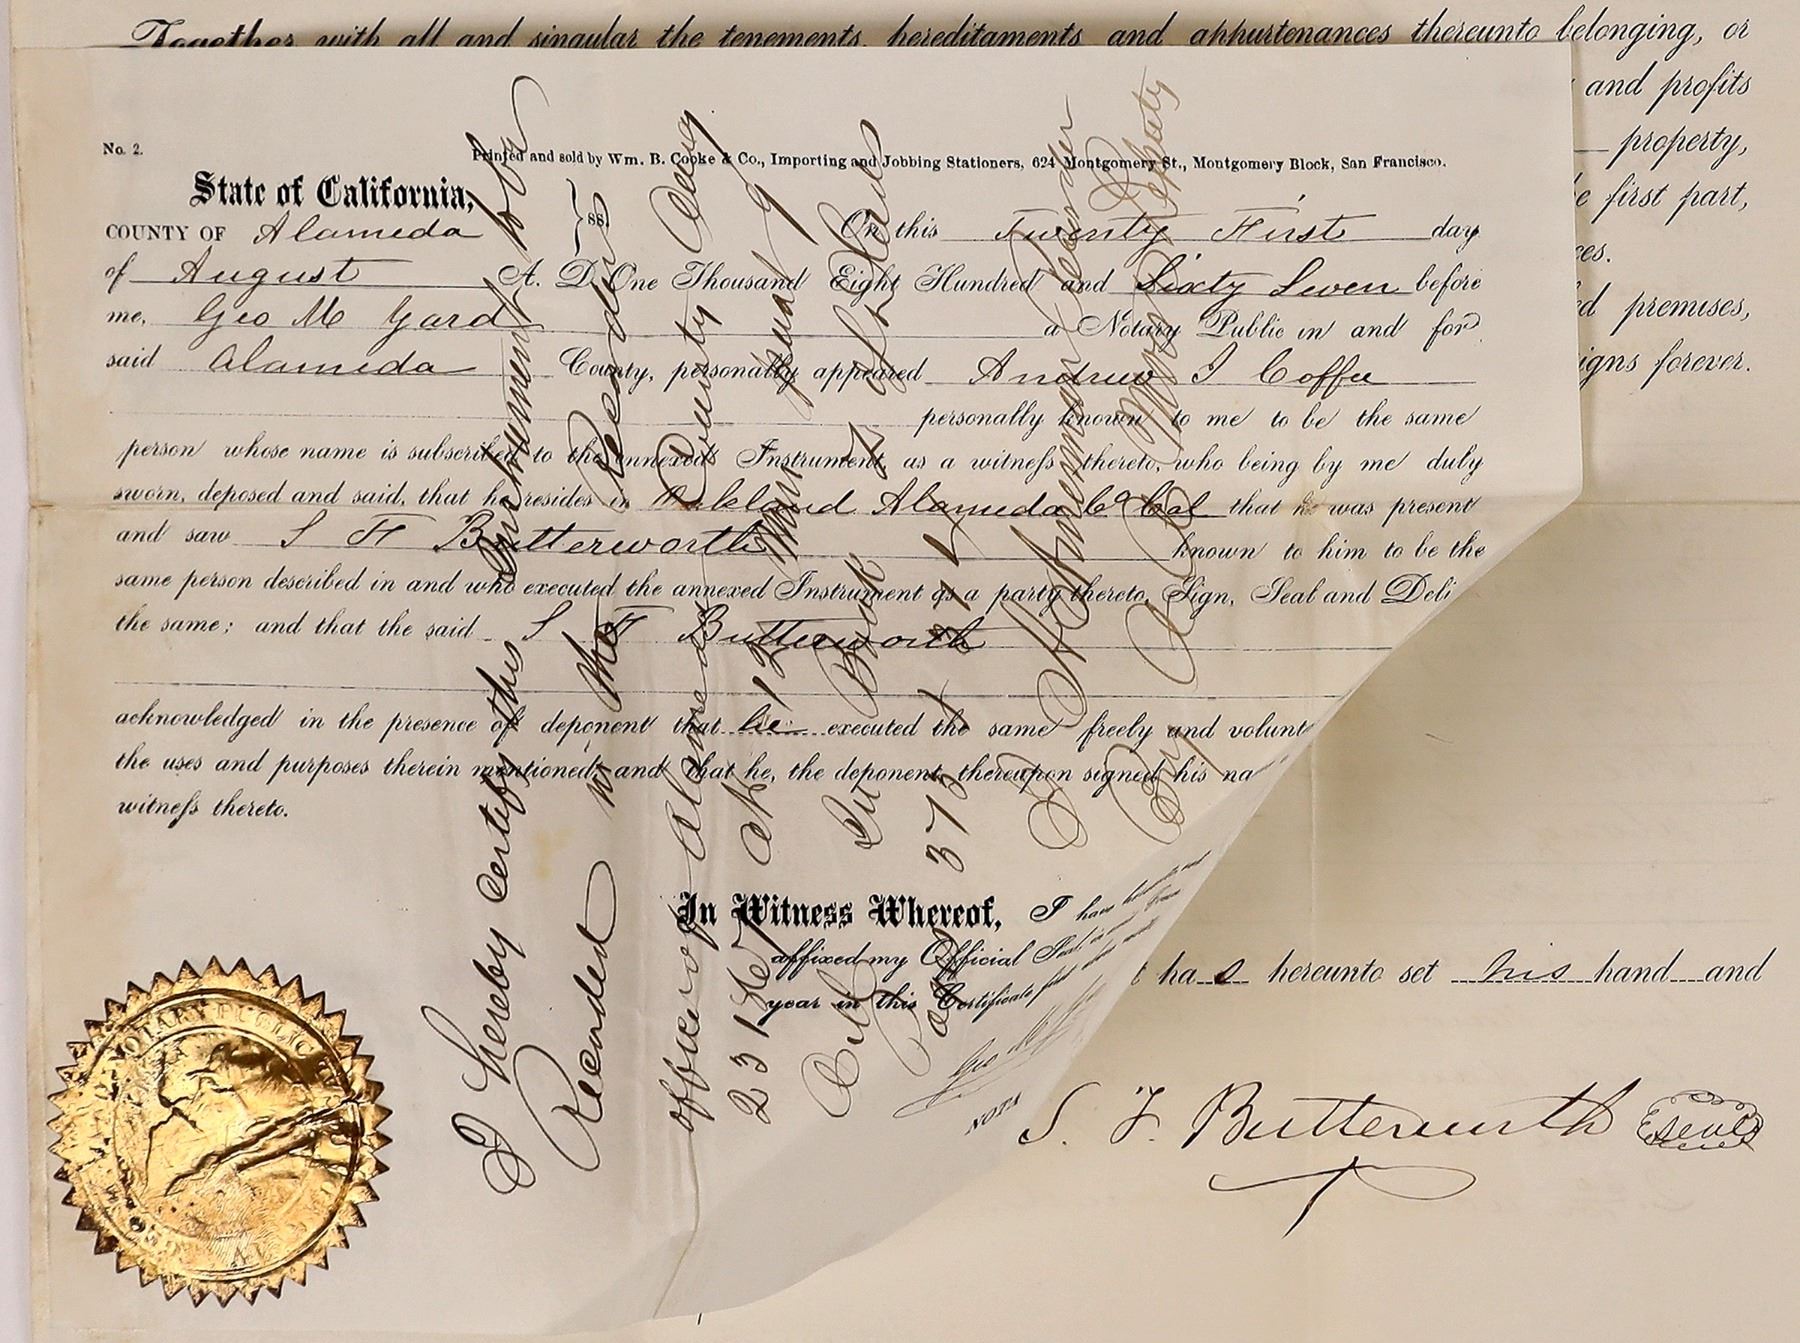 Together with all and singular the tenements, hereditaments and appurtenances thereunto belonging, or
and profits
property,
first part,
premises,
forever.
No. 2.
Printed and sold by Wm. B. Cooke & Co., Importing and Jobbing Stationers, 624 Montgomery St., Montgomery Block, San Francisco.
State of California,
COUNTY OF Alameda } ss. On this Twenty First day
of August A. D. One Thousand Eight Hundred and Sixty Seven before
me, Geo M Yard a Notary Public in and for
said Alameda County, personally appeared Andrew J Coffee
personally known to me to be the same
person whose name is subscribed to the annexed Instrument, as a witness thereto, who being by me duly
sworn, deposed and said, that he resides in Oakland Alameda Co Cal that he was present
and saw S F Butterworth known to him to be the
same person described in and who executed the annexed Instrument as a party thereto, Sign, Seal and Deli
the same; and that the said S F Butterworth
acknowledged in the presence of deponent that he executed the same freely and volunt
the uses and purposes therein mentioned, and that he, the deponent, thereupon signed his na
witness thereto.
In Witness Whereof, I have
affixed my Official Seal
year in this Certificate
Geo M
NOTA
I hereby certify this Instrument to be
Recorded in the Recorders
office of Alameda County Cal
231867
Book
ha s hereunto set his hand and
S. F. Butterworth Seal
NOTARY PUBLIC